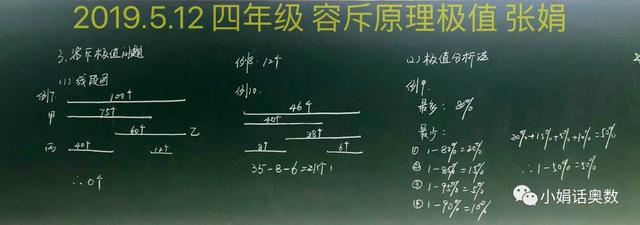 2019.5.12 四年级 容斥原理极值 张娟
3. 容斥极值问题
(1) 线段图
例7.
100个
甲
75个
60个
乙
丙
40个
12个
∴0个
例8. 12个
例10.
46个
40个
38个
8个
6个
35-8-6=21(个)
(2) 极值分析法
例9.
最多: 80%
最少:
① 1-80%=20%
② 1-85%=15%
③ 1-95%=5%
④ 1-90%=10%
20%+15%+5%+10%=50%
∴1-50%=50%
小娟话奥数